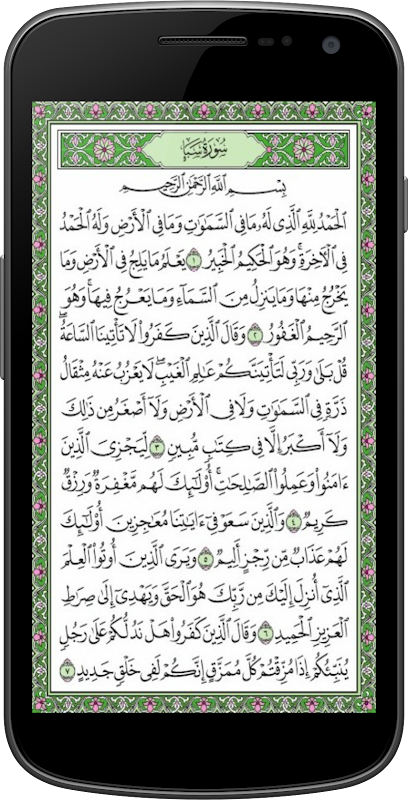 سُورَةُ سَبَإٍ
بِسْمِ اللَّهِ الرَّحْمَٰنِ الرَّحِيمِ
الْحَمْدُ لِلَّهِ الَّذِي لَهُ مَا فِي السَّمَاوَاتِ وَمَا فِي الْأَرْضِ وَلَهُ الْحَمْدُ
فِي الْآخِرَةِ ۚ وَهُوَ الْحَكِيمُ الْخَبِيرُ ١ يَعْلَمُ مَا يَلِجُ فِي الْأَرْضِ وَمَا
يَخْرُجُ مِنْهَا وَمَا يَنزِلُ مِنَ السَّمَاءِ وَمَا يَعْرُجُ فِيهَا ۚ وَهُوَ
الرَّحِيمُ الْغَفُورُ ٢ وَقَالَ الَّذِينَ كَفَرُوا لَا تَأْتِينَا السَّاعَةُ ۖ
قُلْ بَلَىٰ وَرَبِّي لَتَأْتِيَنَّكُمْ عَالِمِ الْغَيْبِ ۖ لَا يَعْزُبُ عَنْهُ مِثْقَالُ
ذَرَّةٍ فِي السَّمَاوَاتِ وَلَا فِي الْأَرْضِ وَلَا أَصْغَرُ مِن ذَٰلِكَ
وَلَا أَكْبَرُ إِلَّا فِي كِتَابٍ مُّبِينٍ ٣ لِّيَجْزِيَ الَّذِينَ
ءَامَنُوا وَعَمِلُوا الصَّالِحَاتِ ۚ أُولَٰئِكَ لَهُم مَّغْفِرَةٌ وَرِزْقٌ
كَرِيمٌ ٤ وَالَّذِينَ سَعَوْ فِي ءَايَاتِنَا مُعَاجِزِينَ أُولَٰئِكَ
لَهُمْ عَذَابٌ مِّن رِّجْزٍ أَلِيمٌ ٥ وَيَرَى الَّذِينَ أُوتُوا الْعِلْمَ
الَّذِي أُنزِلَ إِلَيْكَ مِن رَّبِّكَ هُوَ الْحَقَّ وَيَهْدِي إِلَىٰ صِرَاطِ
الْعَزِيزِ الْحَمِيدِ ٦ وَقَالَ الَّذِينَ كَفَرُوا هَلْ نَدُلُّكُمْ عَلَىٰ رَجُلٍ
يُنَبِّئُكُمْ إِذَا مُزِّقْتُمْ كُلَّ مُمَزَّقٍ إِنَّكُمْ لَفِي خَلْقٍ جَدِيدٍ ٧